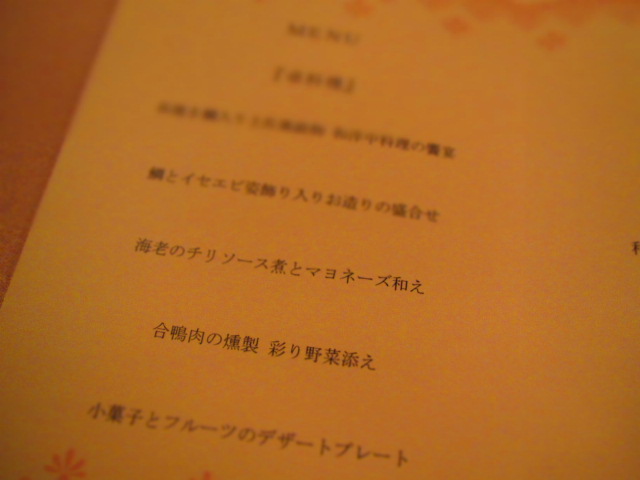 MENU
和洋中料理の饗宴
鯛とイセエビ姿飾り入りお造りの盛合せ
海老のチリソース煮とマヨネーズ和え
合鴨肉の燻製 彩り野菜添え
小菓子とフルーツのデザートプレート